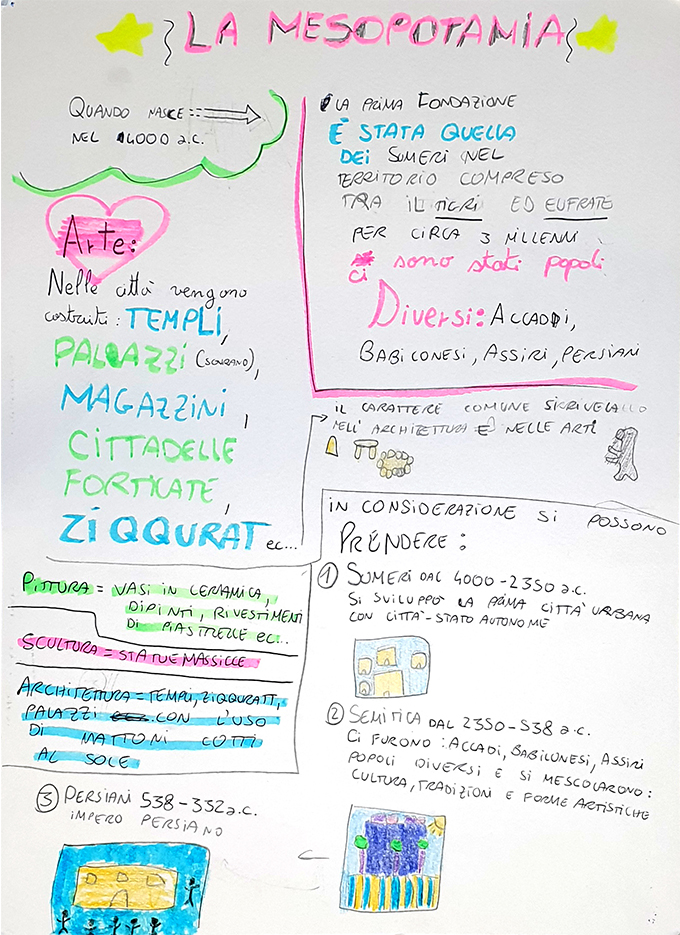 LA MESOPOTAMIA
QUANDO NASCE
NEL 4000 a.C.
LA PRIMA FONDAZIONE
È STATA QUELLA
DEI SUMERI NEL
TERRITORIO COMPRESO
TRA IL TIGRI ED EUFRATE
PER CIRCA 3 MILLENNI
ci sono stati popoli
Diversi: ACCADDI,
BABILONESI, ASSIRI, PERSIANI
Arte:
Nelle città vengono
costruiti: TEMPLI,
PALAZZI (SOVRANO),
MAGAZZINI,
CITTADELLE
FORTICATE,
ZIQQURAT ec...
IL CARATTERE COMUNE SI RIVELA
NELL'ARCHITETTURA E NELLE ARTI
IN CONSIDERAZIONE SI POSSONO
PRENDERE:
1 SUMERI DAL 4000-2350 a.C.
SI SVILUPPÒ LA PRIMA CITTÀ URBANA
CON CITTÀ-STATO AUTONOME
2 SEMITICA DAL 2350-538 a.C.
CI FURONO: ACCADI, BABILONESI, ASSIRI
POPOLI DIVERSI E SI MESCOLARONO:
CULTURA, TRADIZIONI E FORME ARTISTICHE
PITTURA = VASI IN CERAMICA,
DIPINTI, RIVESTIMENTI
DI PIASTRELLE EC...
SCULTURA = STATUE MASSICCE
ARCHITETTURA = TEMPLI, ZIQQURATT,
PALAZZI CON L'USO
DI MATTONI COTTI
AL SOLE
3 PERSIANI 538-332 a.C.
IMPERO PERSIANO